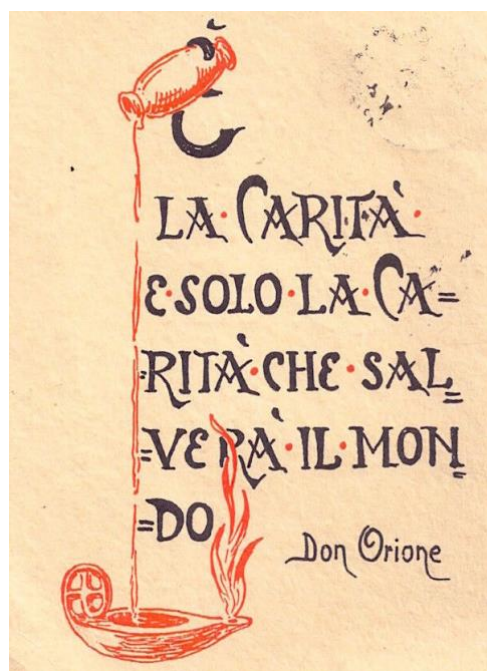 È
LA·CARITÀ·
E·SOLO·LA·CA=
=RITÀ·CHE·SAL=
=VERÀ·IL·MON=
=DO
Don Orione